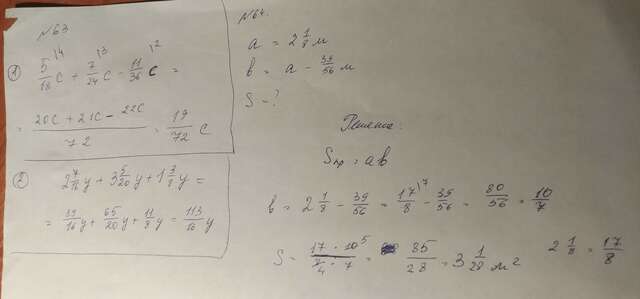 №63
1) 5/18 |4 c + 7/24 |3 c - 11/36 |2 c =
= (20c + 21c - 22c)/72 = 19/72 c
2) 2 7/16 y + 3 5/20 y + 1 3/8 y =
= 39/16 y + 65/20 y + 11/8 y = 113/16 y
№64.
a = 2 1/8 м
b = a - 39/56 м
S = ?
Решение:
Sпр = ab
b = 2 1/8 - 39/56 = 17/8 |7 - 39/56 = 80/56 = 10/7
S = (17 · 10 5)/(4 · 7) = 85/28 = 3 1/28 м²
2 1/8 = 17/8